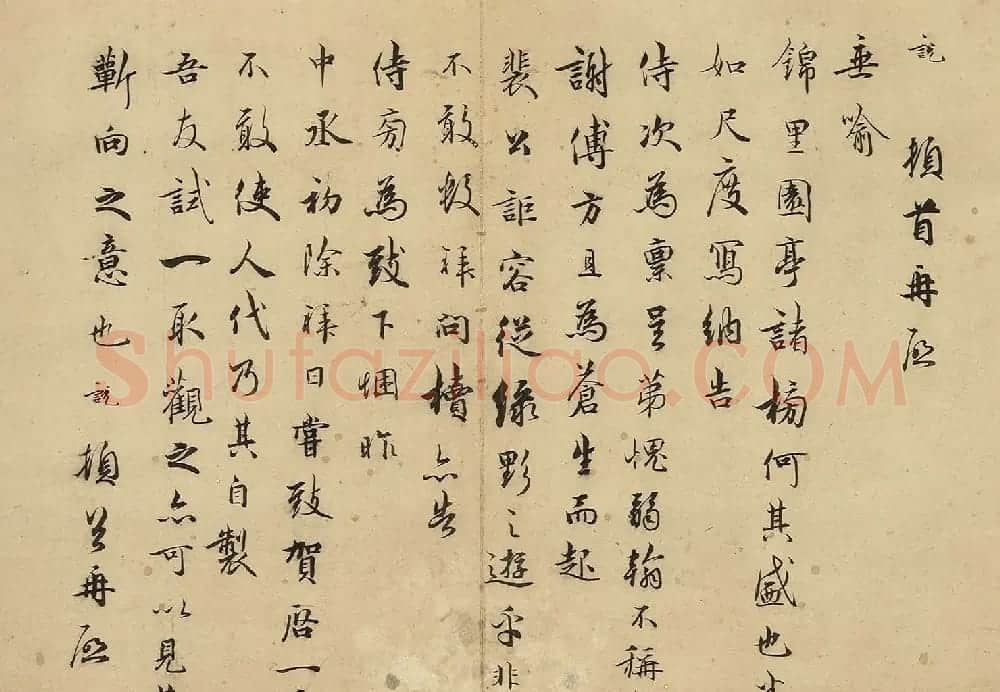 說 頓首再啟
垂喻
錦里園亭諸榜何其盛也
如尺度寫納告
侍次為稟呈弟愧弱翰不稱
謝傅方且為蒼生而起
裴公詎容從綠野之遊乎非
不敢數拜問牘亦告
侍旁為致下悃昨
中丞初除拜日嘗致賀啓一
不敢使人代乃其自製
吾友試一取觀之亦可以見
蘄向之意也 說 頓首再啟
Shufaziliao.COM